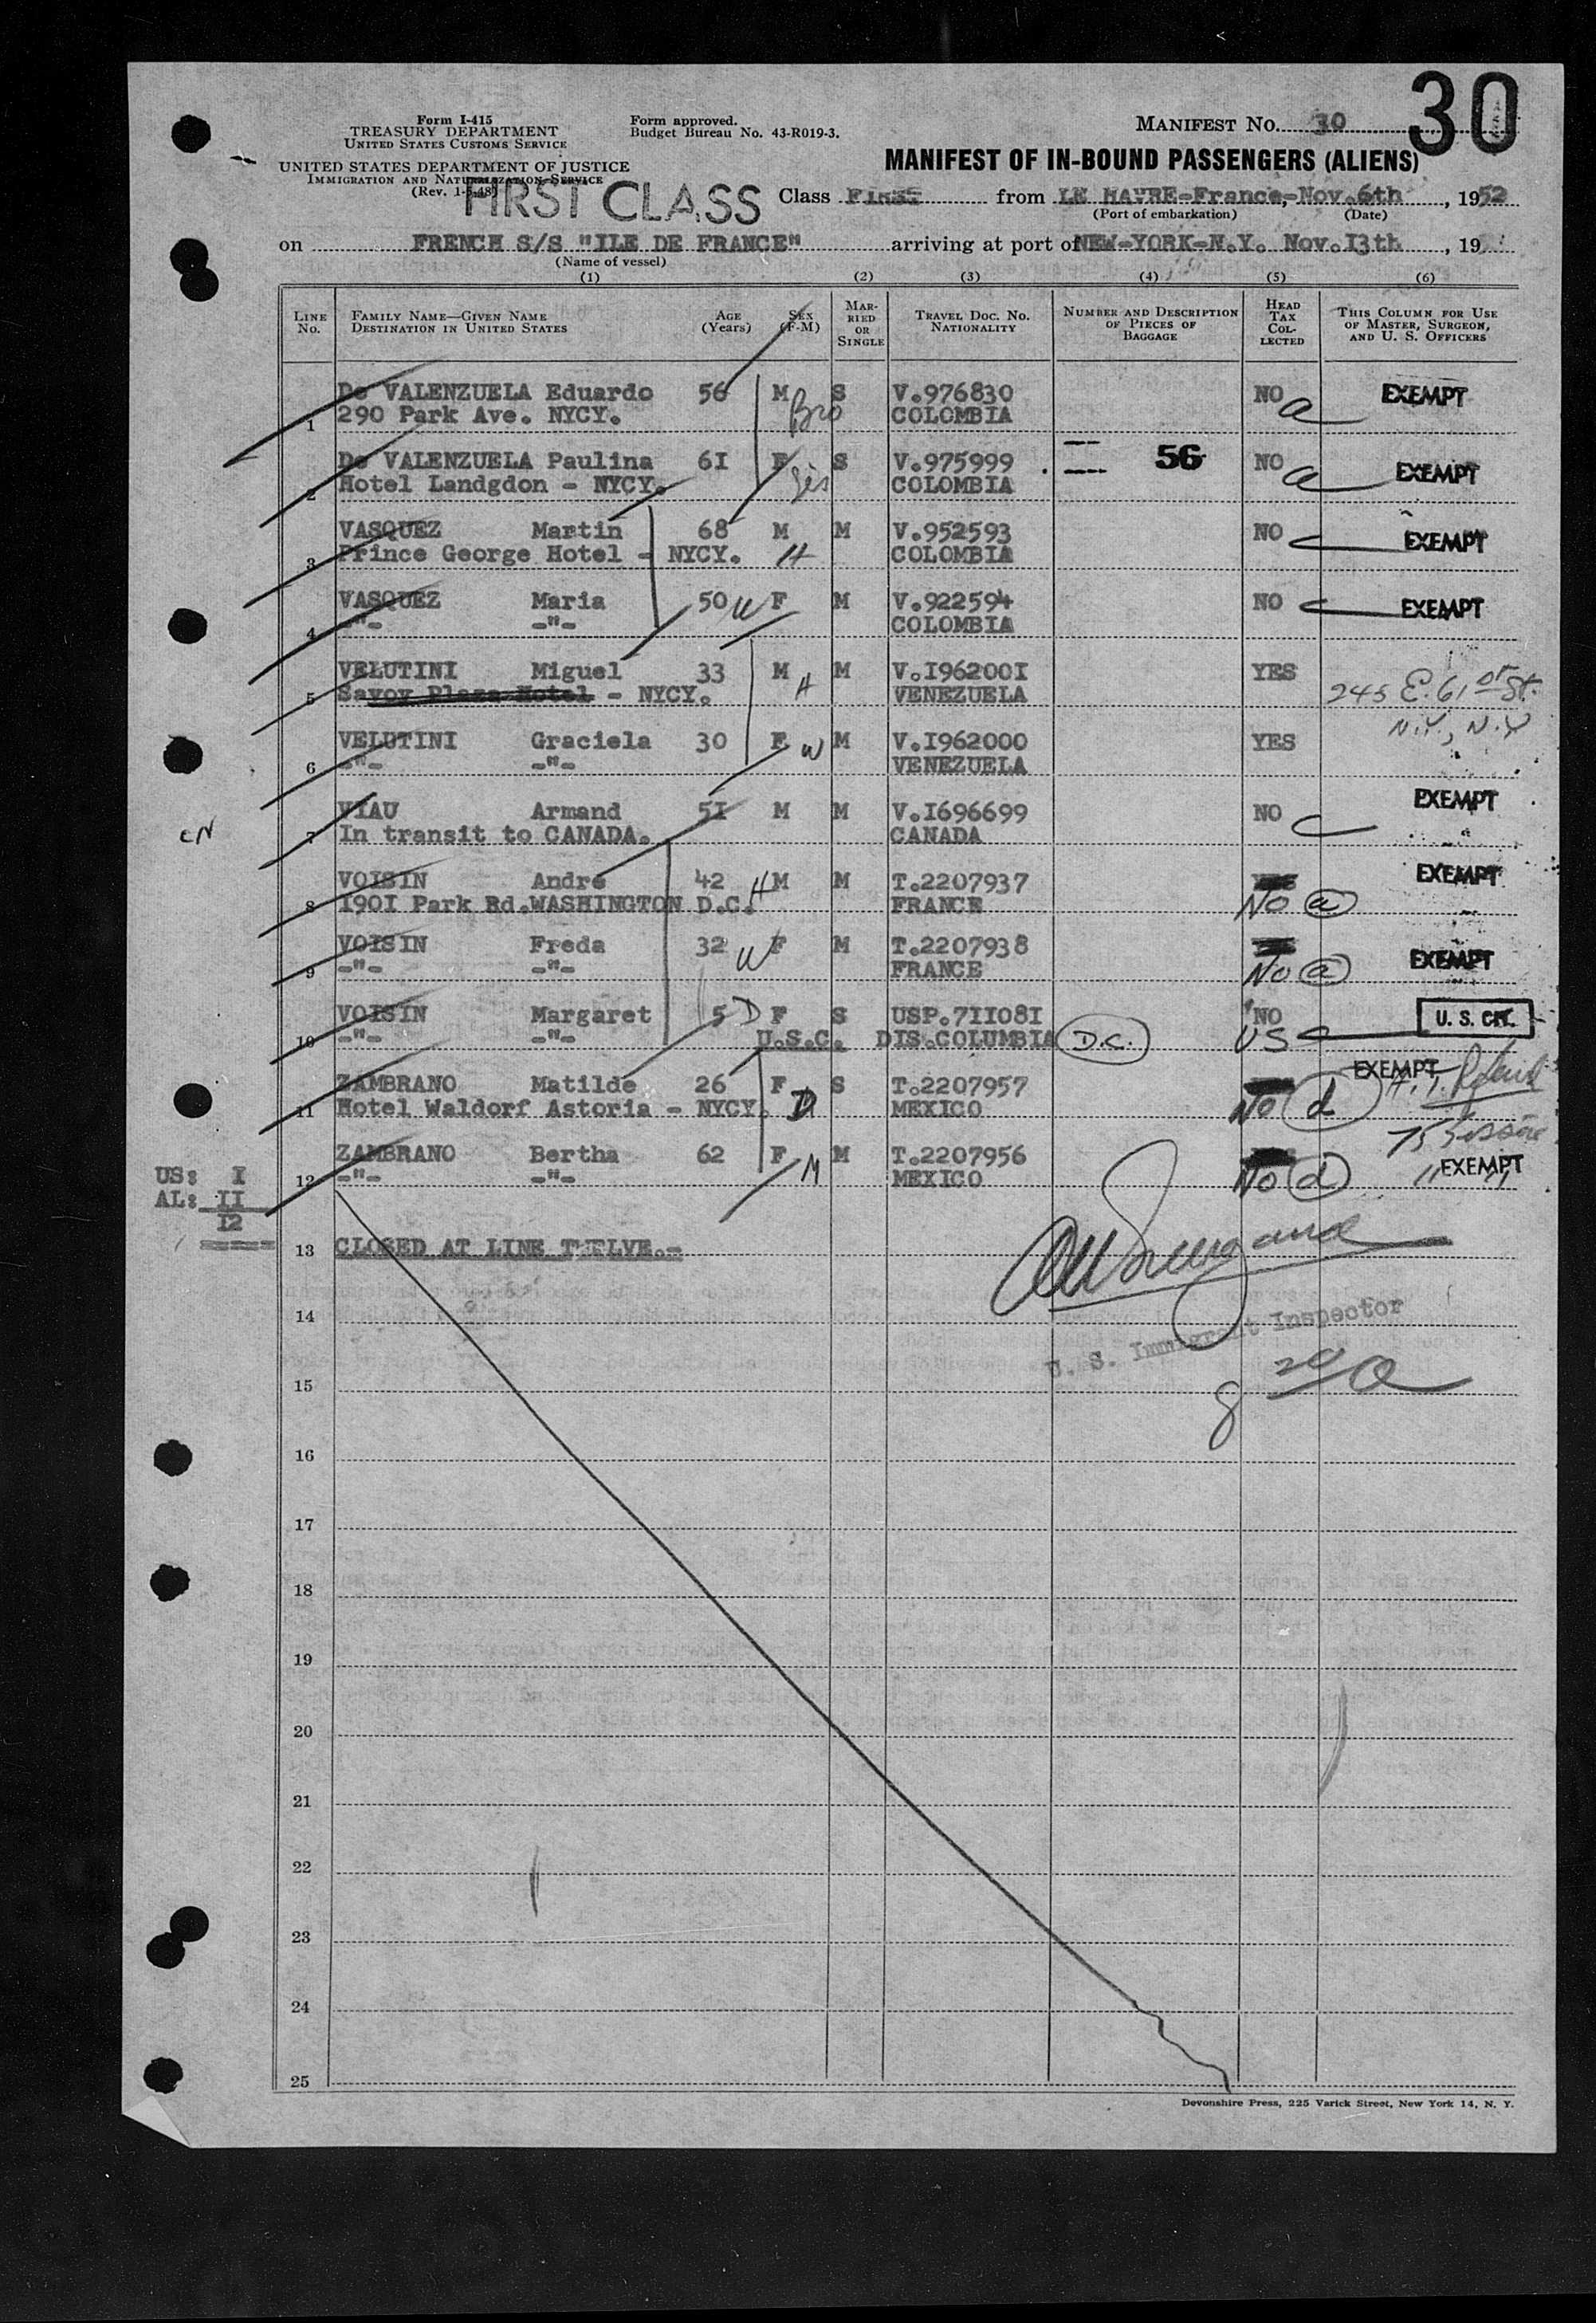 30
Form I-415
TREASURY DEPARTMENT
UNITED STATES CUSTOMS SERVICE
Form approved.
Budget Bureau No. 43-R019-3.
MANIFEST NO. 30
UNITED STATES DEPARTMENT OF JUSTICE
IMMIGRATION AND NATURALIZATION SERVICE
(Rev. 1-5-48)
MANIFEST OF IN-BOUND PASSENGERS (ALIENS)
FIRST CLASS
Class FIRST from LE HAVRE-France,-Nov.6th, 1952
(Port of embarkation) (Date)
on FRENCH S/S "ILE DE FRANCE" arriving at port of NEW-YORK-N.Y. Nov.I3th, 19
(Name of vessel)
(1) (2) (3) (4) (5) (6)
LINE No. FAMILY NAME—GIVEN NAME DESTINATION IN UNITED STATES AGE (Years) SEX (F-M) MARRIED OR SINGLE TRAVEL DOC. NO. NATIONALITY NUMBER AND DESCRIPTION OF PIECES OF BAGGAGE HEAD TAX COLLECTED THIS COLUMN FOR USE OF MASTER, SURGEON, AND U. S. OFFICERS
De VALENZUELA Eduardo 56 M S V.976830 NO a EXEMPT
1 290 Park Ave. NYCY. Bro COLOMBIA
De VALENZUELA Paulina 6I F S V.975999 56 NO a EXEMPT
2 Hotel Landgdon - NYCY. Sis COLOMBIA
VASQUEZ Martin 68 M M V.952593 NO EXEMPT
3 Prince George Hotel - NYCY. H COLOMBIA
VASQUEZ Maria 50 W F M V.922594 NO EXEMPT
4 -"- -"- COLOMBIA
VELUTINI Miguel 33 M M V.I96200I YES
5 Savoy Plaza Hotel - NYCY. H VENEZUELA 245 E. 61st St.
N.Y., N.Y
VELUTINI Graciela 30 F M V.I962000 YES
6 -"- -"- W VENEZUELA
VIAU Armand 5I M M V.I696699 NO EXEMPT
CN 7 In transit to CANADA. CANADA
VOISIN Andre 42 H M M T.2207937 EXEMPT
8 I90I Park Rd.WASHINGTON D.C. FRANCE No a
VOISIN Freda 32 W F M T.2207938 EXEMPT
9 -"- -"- FRANCE No a
VOISIN Margaret 5 D F S USP.7II08I NO U. S. CIT.
10 -"- -"- U.S.C. DIS.COLUMBIA D.C. US
ZAMBRANO Matilde 26 F S T.2207957 EXEMPT
11 Hotel Waldorf Astoria - NYCY. D MEXICO No d
ZAMBRANO Bertha 62 F M T.2207956 EXEMPT
12 -"- -"- M MEXICO No d
US: I
AL: II
I2
13 CLOSED AT LINE TWELVE.-
14
U. S. Immigrant Inspector
15
8 20 a
16
17
18
19
20
21
22
23
24
25
Devonshire Press, 225 Varick Street, New York 14, N. Y.